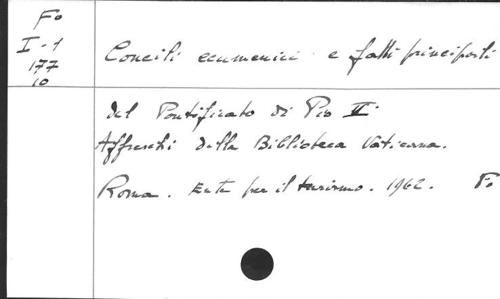 Fo
I-1
177
10
Concili ecumenici e fatti principali
del Pontificato di Pio VI
Affreschi della Biblioteca Vaticana.
Roma. Ente per il turismo. 1962. Fo